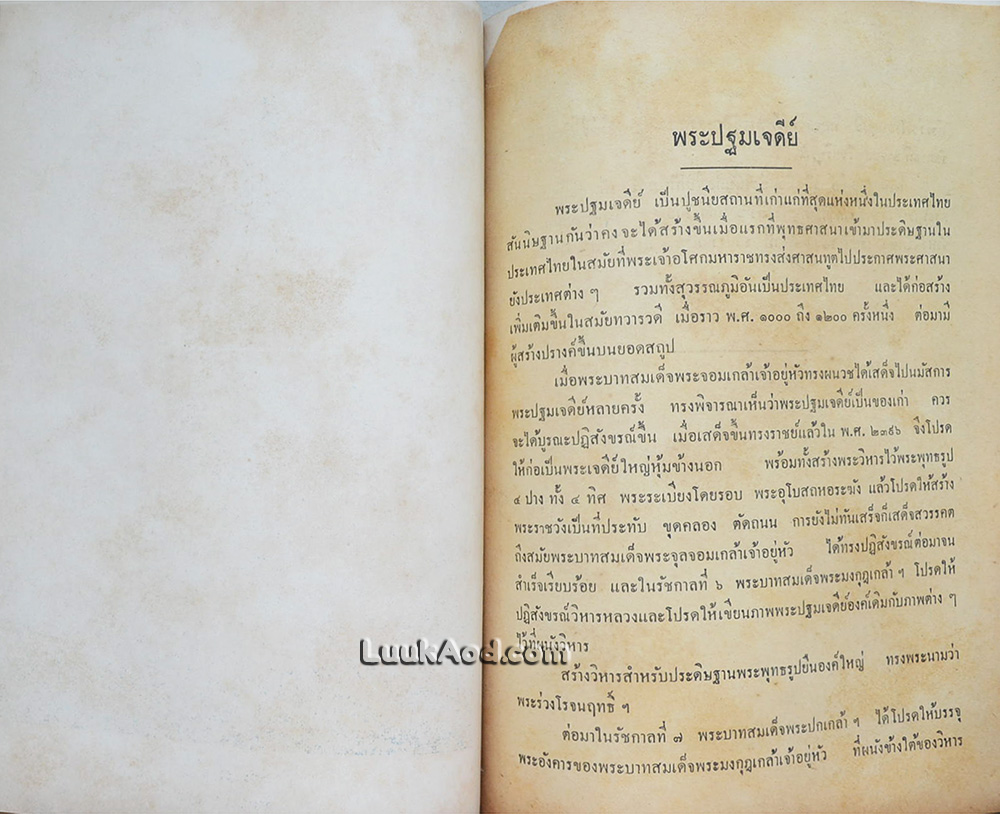 พระปฐมเจดีย์
พระปฐมเจดีย์ เป็นปูชนียสถานที่เก่าแก่ที่สุดแห่งหนึ่งในประเทศไทย
สันนิษฐานกันว่าคงจะได้สร้างขึ้นเมื่อแรกที่พุทธศาสนาเข้ามาประดิษฐานใน
ประเทศไทยในสมัยที่พระเจ้าอโศกมหาราชทรงส่งศาสนทูตไปประกาศพระศาสนา
ยังประเทศต่าง ๆ รวมทั้งสุวรรณภูมิอันเป็นประเทศไทย และได้ก่อสร้าง
เพิ่มเติมขึ้นในสมัยทวารวดี เมื่อราว พ.ศ. ๑๐๐๐ ถึง ๑๒๐๐ ครั้งหนึ่ง ต่อมามี
ผู้สร้างปรางค์ขึ้นบนยอดสถูป
เมื่อพระบาทสมเด็จพระจอมเกล้าเจ้าอยู่หัวทรงผนวชได้เสด็จไปนมัสการ
พระปฐมเจดีย์หลายครั้ง ทรงพิจารณาเห็นว่าพระปฐมเจดีย์เป็นของเก่า ควร
จะได้บูรณะปฏิสังขรณ์ขึ้น เมื่อเสด็จขึ้นทรงราชย์แล้วใน พ.ศ. ๒๓๙๖ จึงโปรด
ให้ก่อเป็นพระเจดีย์ใหญ่หุ้มข้างนอก พร้อมทั้งสร้างพระวิหารไว้พระพุทธรูป
๔ ปาง ทั้ง ๔ ทิศ พระระเบียงโดยรอบ พระอุโบสถหอระฆัง แล้วโปรดให้สร้าง
พระราชวังเป็นที่ประทับ ขุดคลอง ตัดถนน การยังไม่ทันเสร็จก็เสด็จสวรรคต
ถึงสมัยพระบาทสมเด็จพระจุลจอมเกล้าเจ้าอยู่หัว ได้ทรงปฏิสังขรณ์ต่อมาจน
สำเร็จเรียบร้อย และในรัชกาลที่ ๖ พระบาทสมเด็จพระมงกุฎเกล้า ฯ โปรดให้
ปฏิสังขรณ์วิหารหลวงและโปรดให้เขียนภาพพระปฐมเจดีย์องค์เดิมกับภาพต่าง ๆ
ไว้ที่ผนังวิหาร
LuukAod.com
สร้างวิหารสำหรับประดิษฐานพระพุทธรูปยืนองค์ใหญ่ ทรงพระนามว่า
พระร่วงโรจนฤทธิ์ ฯ
ต่อมาในรัชกาลที่ ๗ พระบาทสมเด็จพระปกเกล้า ฯ ได้โปรดให้บรรจุ
พระอังคารของพระบาทสมเด็จพระมงกุฎเกล้าเจ้าอยู่หัว ที่ผนังข้างใต้ของวิหาร